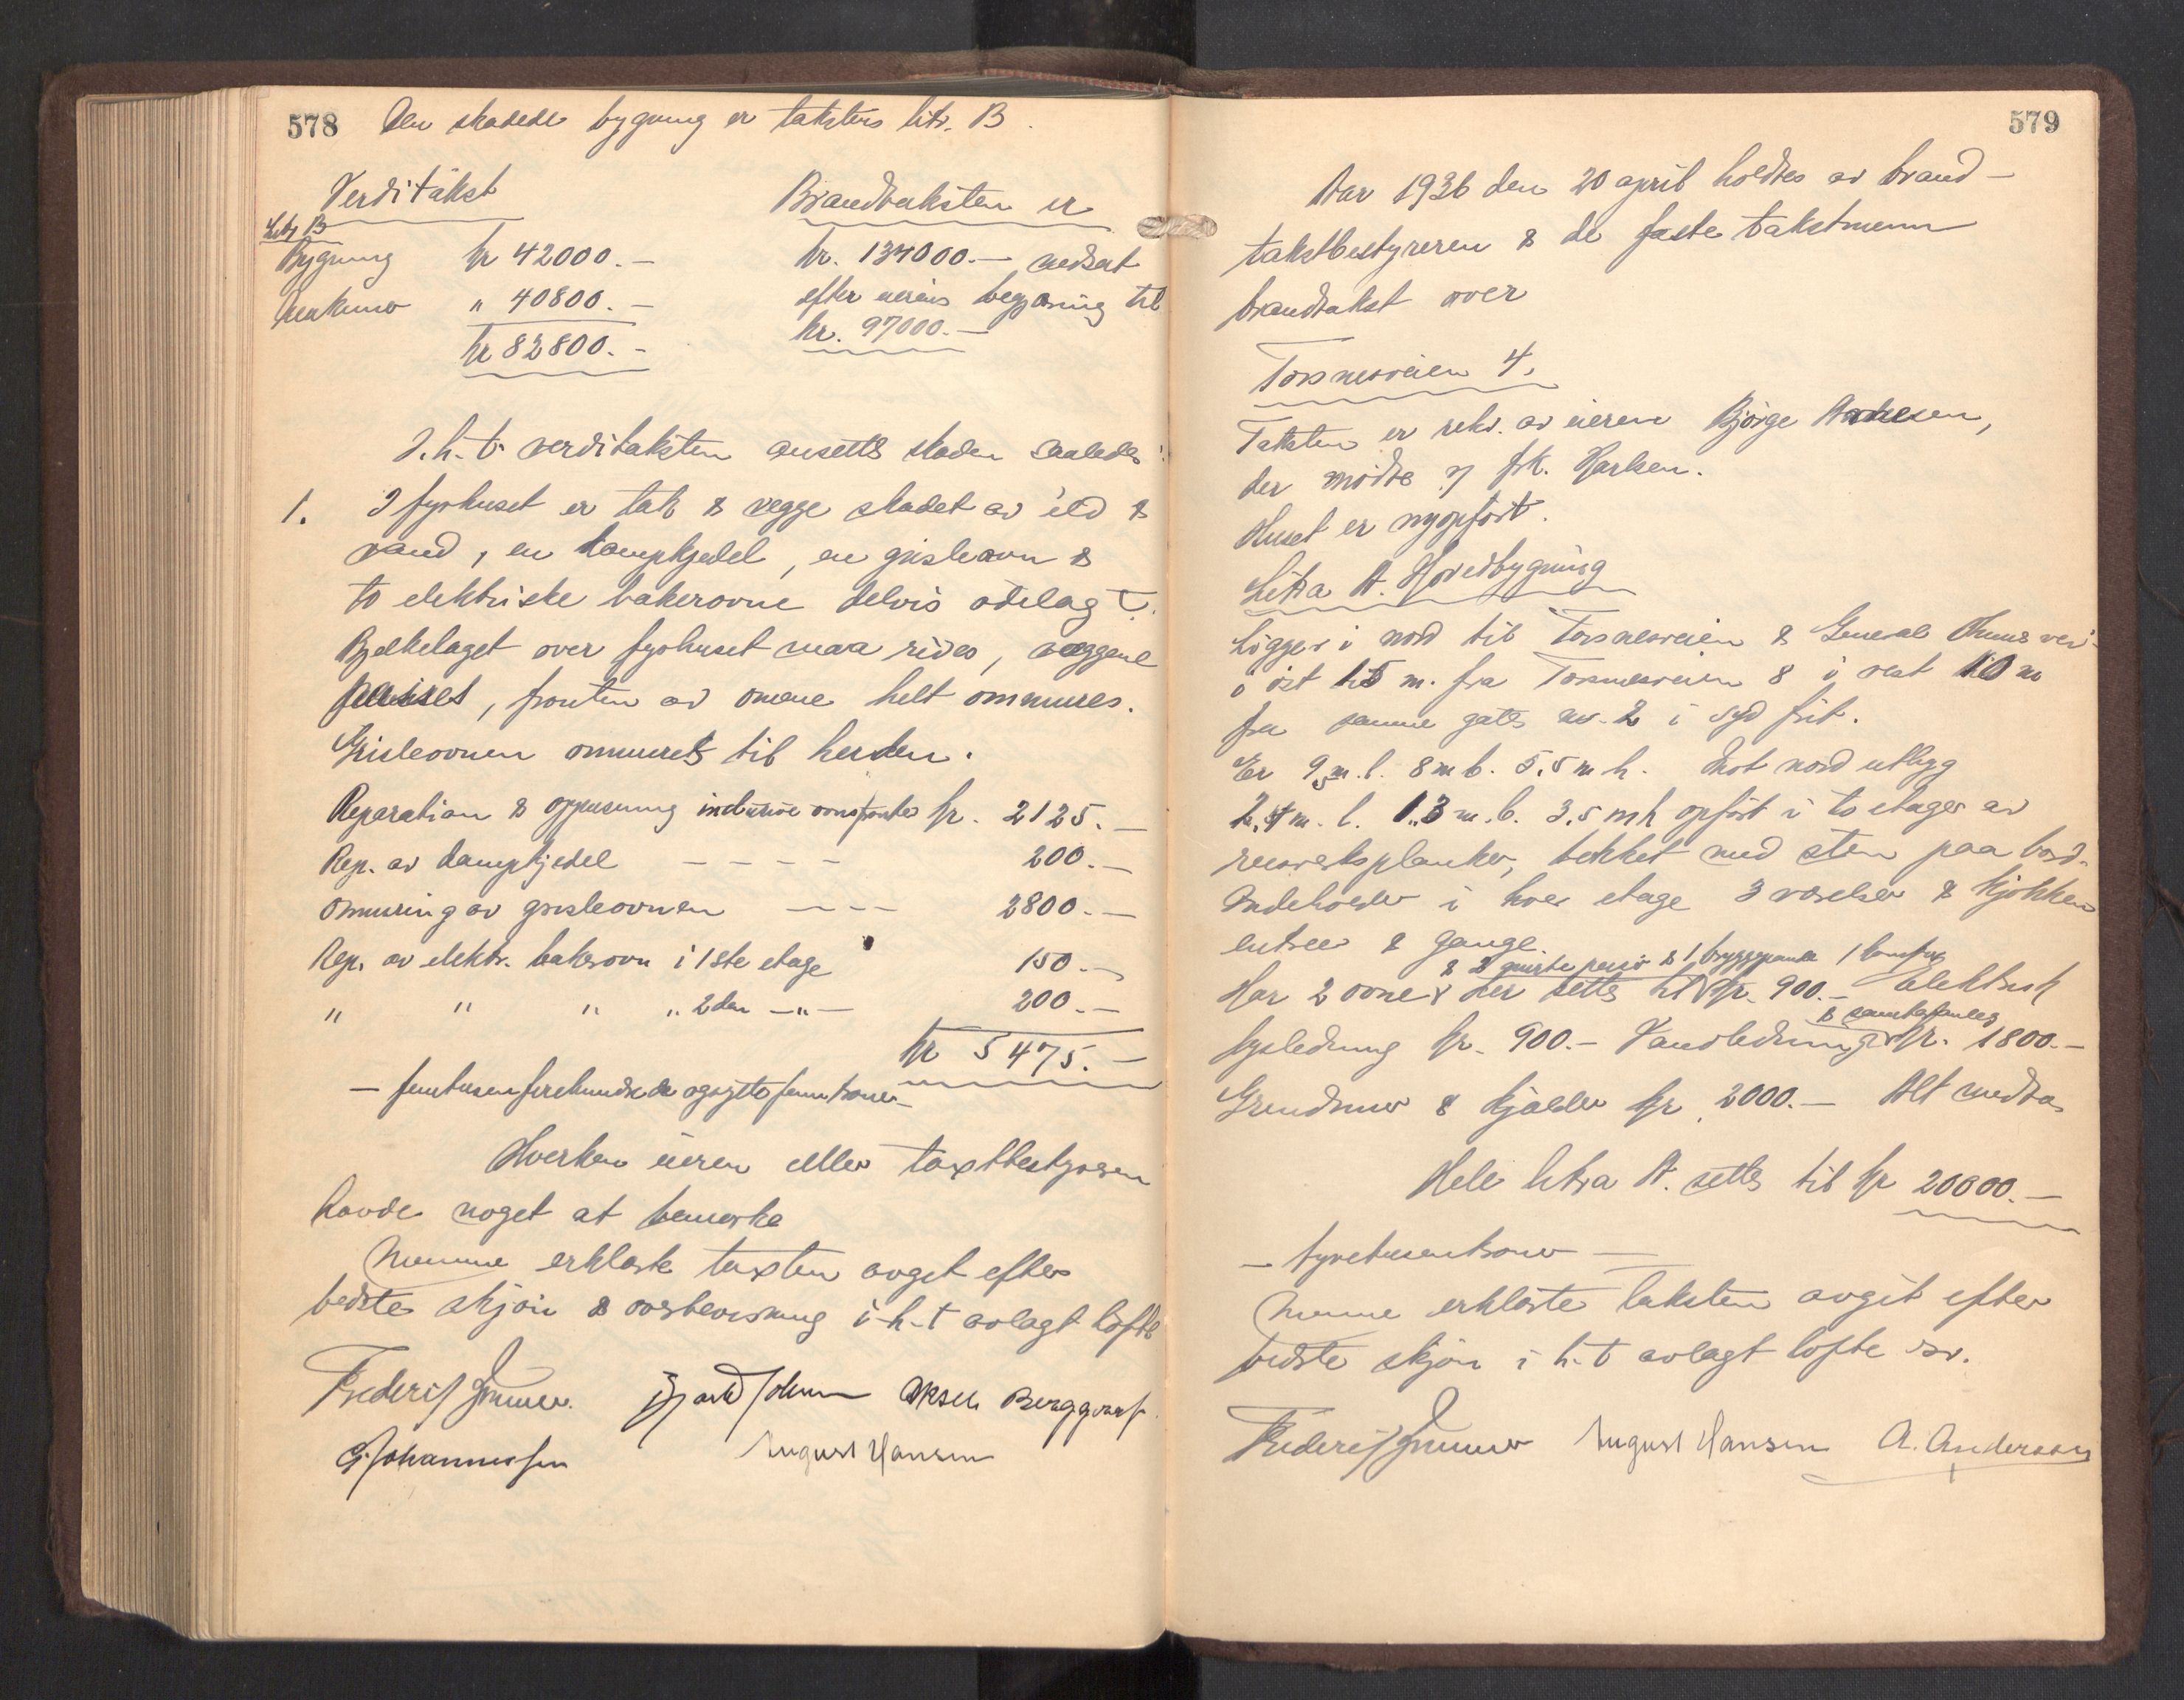 578 Den skadede bygning er takstens litr. B.
Verditakst
Litr B
Bygning kr 42000.-
" 40800.-
kr 82800.-
Brandtaksten er
kr. 134000.- nedsat
efter eierens begjæring til
kr. 97000.-
I.h.t. verditaksten ansettes skaden saaledes:
1. I fyrhuset er tak & vegge skadet av ild &
vand, en dampkjedel, en grisleovn &
to elektriske bakerovne delvis ödelagt.
Bjelkelaget over fyrhuset maa rives, veggene
pudses, fronten av ovnene helt ommures.
Grisleovnen ommures til herden.
Reparation & oppussing inclusive ovnsfronter kr. 2125.-
Rep. av dampkjedel - - - - 200.-
Ommuring av grisleovnen - - - 2800.-
Rep. av elektr. bakerovn i 1ste etage 150.-
" " " " 2den -"- 200.-
kr 5475.-
- femtusenfirehundrede ogsyttifemkroner -
Hverken eieren eller taxtbestyreren
havde noget at bemerke
Mennene erklærte taxten avget efter
bedste skjön & overbevisning i-h-t avlagt löfte
Frederik Grüner. Aksel Berggraf.
G. Johannessen August Hansen
579
Aar 1936 den 20 april holdtes av brand-
takstbestyreren & de faste takstmenn
brandtakst over
Torsnesveien 4.
Taksten er rekv. av eieren Björge Arnesen,
der mödte v/ frk. Karlsen.
Huset er nyopfört.
Litra A. Hovedbygning
Ligger i nord til Torsnesveien & General Ohmes vei
i öst 15 m. fra Torsnesveien 8 i vest 10 m
fra samme gates nr. 2 i syd frit.
Er 9 m. l. 8 m b. 5,5 m h. Mot nord utbygg
2,4 m. l. 1,3 m. b. 3,5 m h opfört i to etager av
reisverksplanker, tekket med sten paa bord.
Indeholder i hver etage 3 værelser & kjökken
entree & gange.
& 2 & 1 bryggepanne 1
Har 2 ovne & der settes til kr. 900.- Elektrisk
lysledning kr. 900.- Vandledning kr. 1800.-
Grundmur & kjælder kr. 2000.- Alt medtas
Hele litra A. settes til kr 20000.-
- tyvetusenkroner -
Mennene erklærte taksten avgit efter
bedste skjön i h-t avlagt löfte
Frederik Grüner August Hansen A. Anderssen